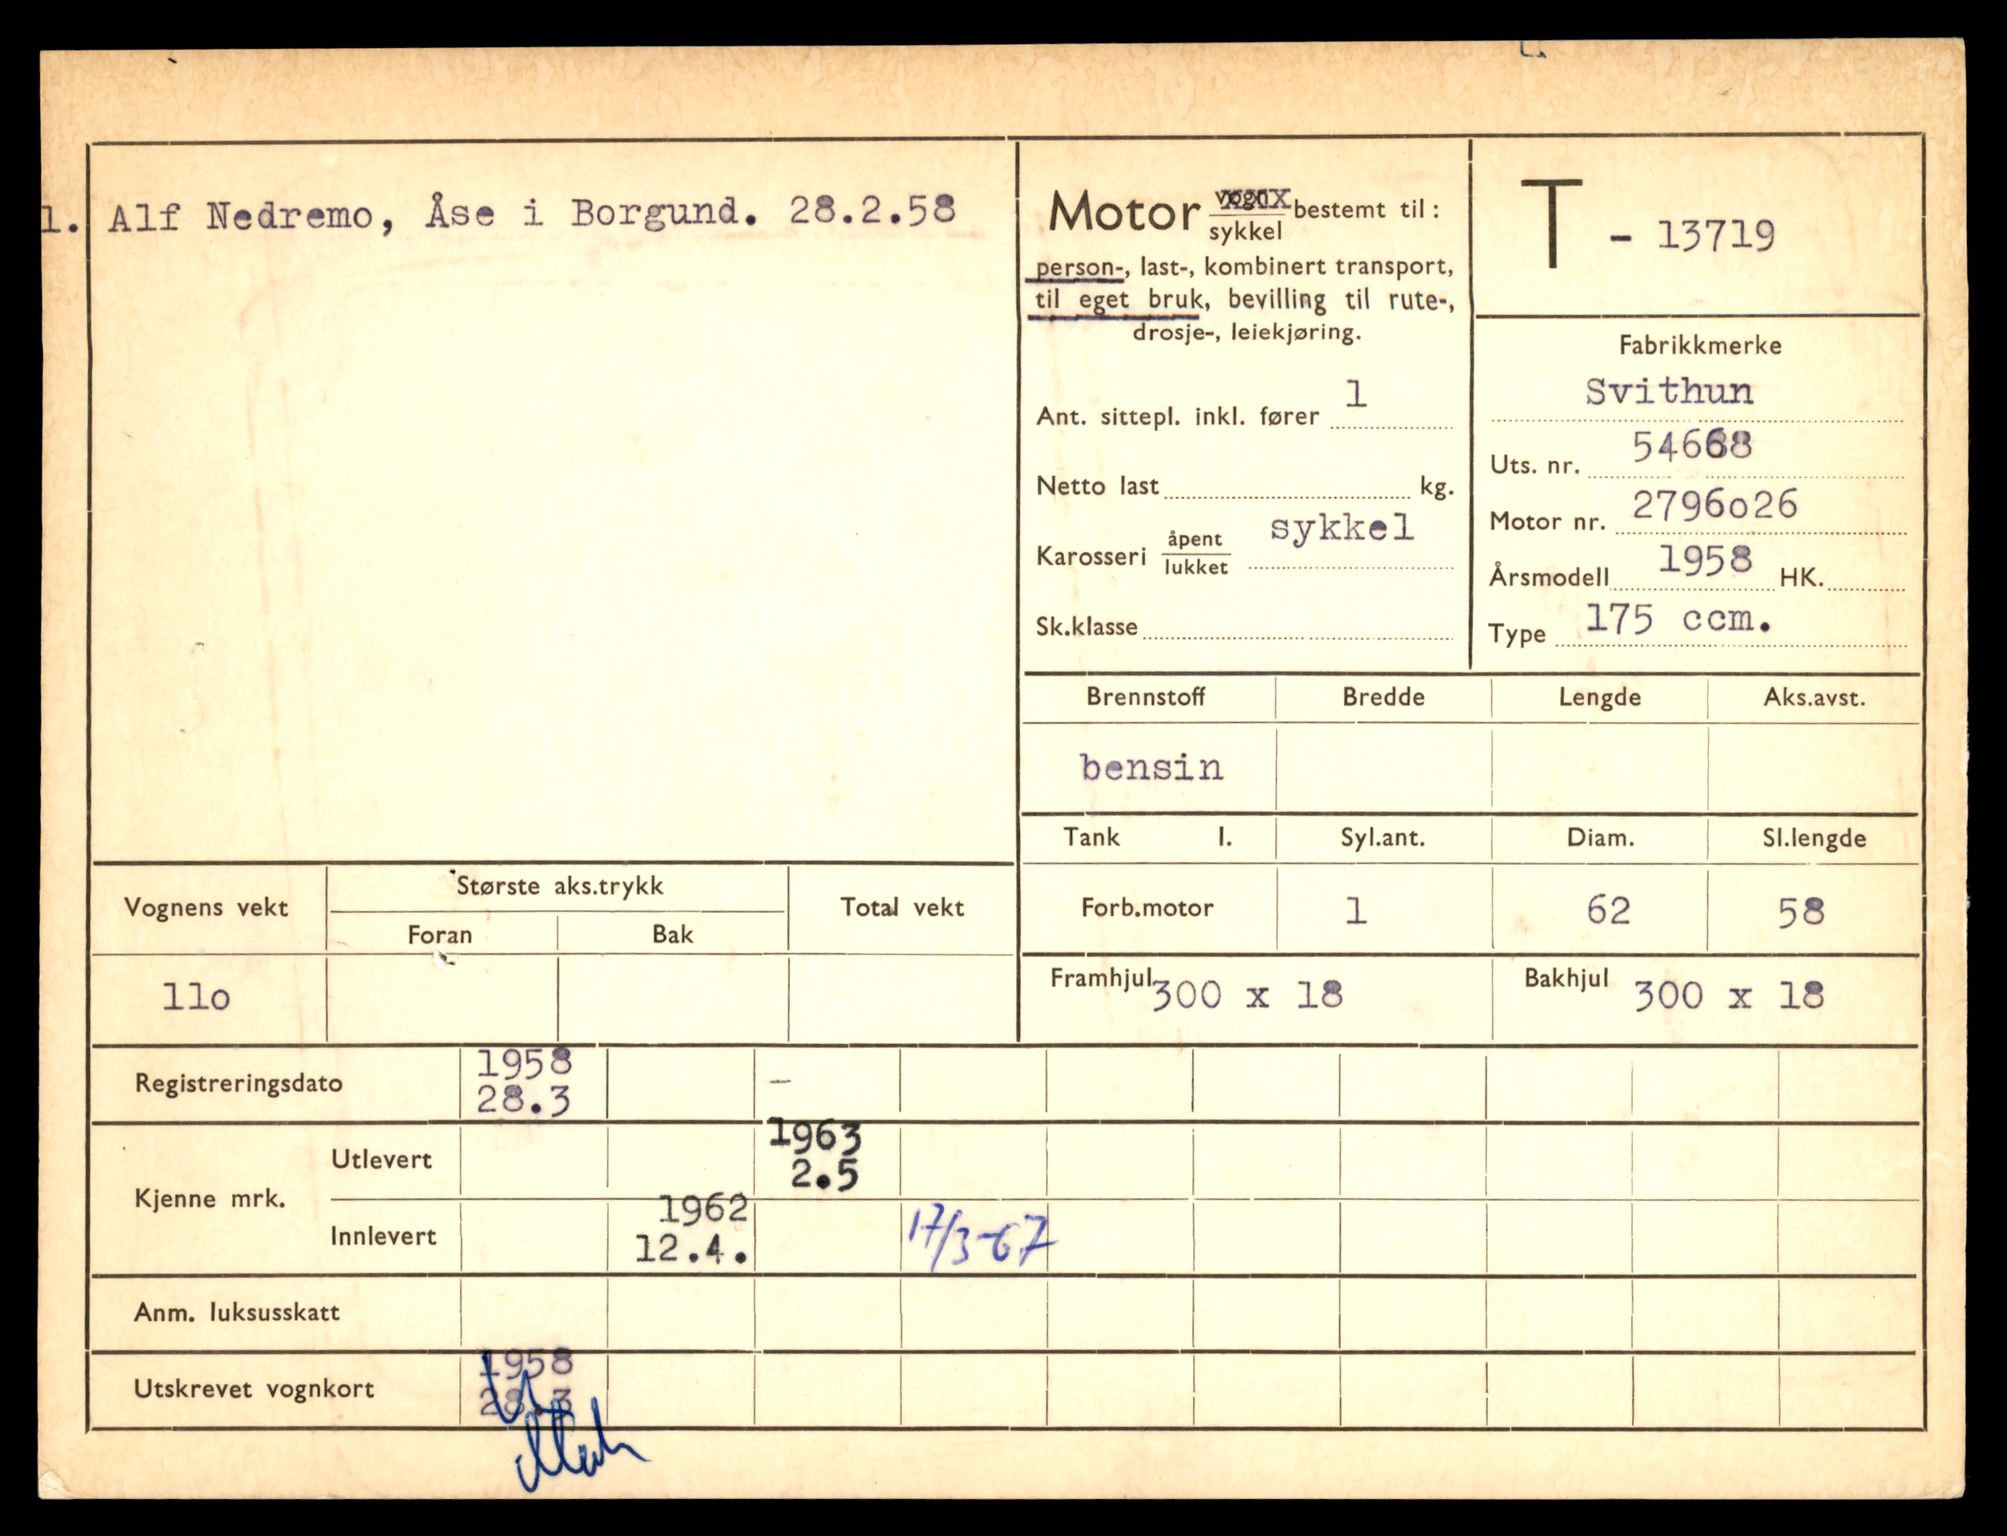 1. Alf Nedremo, Åse i Borgund. 28.2.58
Motor vogn sykkel bestemt til:
person-, last-, kombinert transport,
til eget bruk, bevilling til rute-,
drosje-, leiekjøring.
Ant. sittepl. inkl. fører 1
Netto last kg.
Karosseri åpent lukket sykkel
Sk.klasse
T - 13719
Fabrikkmerke
Svithun
Uts. nr. 54668
Motor nr. 2796o26
Årsmodell 1958 HK.
Type 175 ccm.
Brennstoff Bredde Lengde Aks.avst.
bensin
Tank l. Syl.ant. Diam. Sl.lengde
Forb.motor 1 62 58
Framhjul 300 x 18 Bakhjul 300 x 18
Vognens vekt Største aks.trykk Total vekt
Foran Bak
11o
Registreringsdato 1958 28.3 -
Kjenne mrk. Utlevert 1963 2.5
Innlevert 1962 12.4. 17/3-67
Anm. luksusskatt
Utskrevet vognkort 1958 28.3